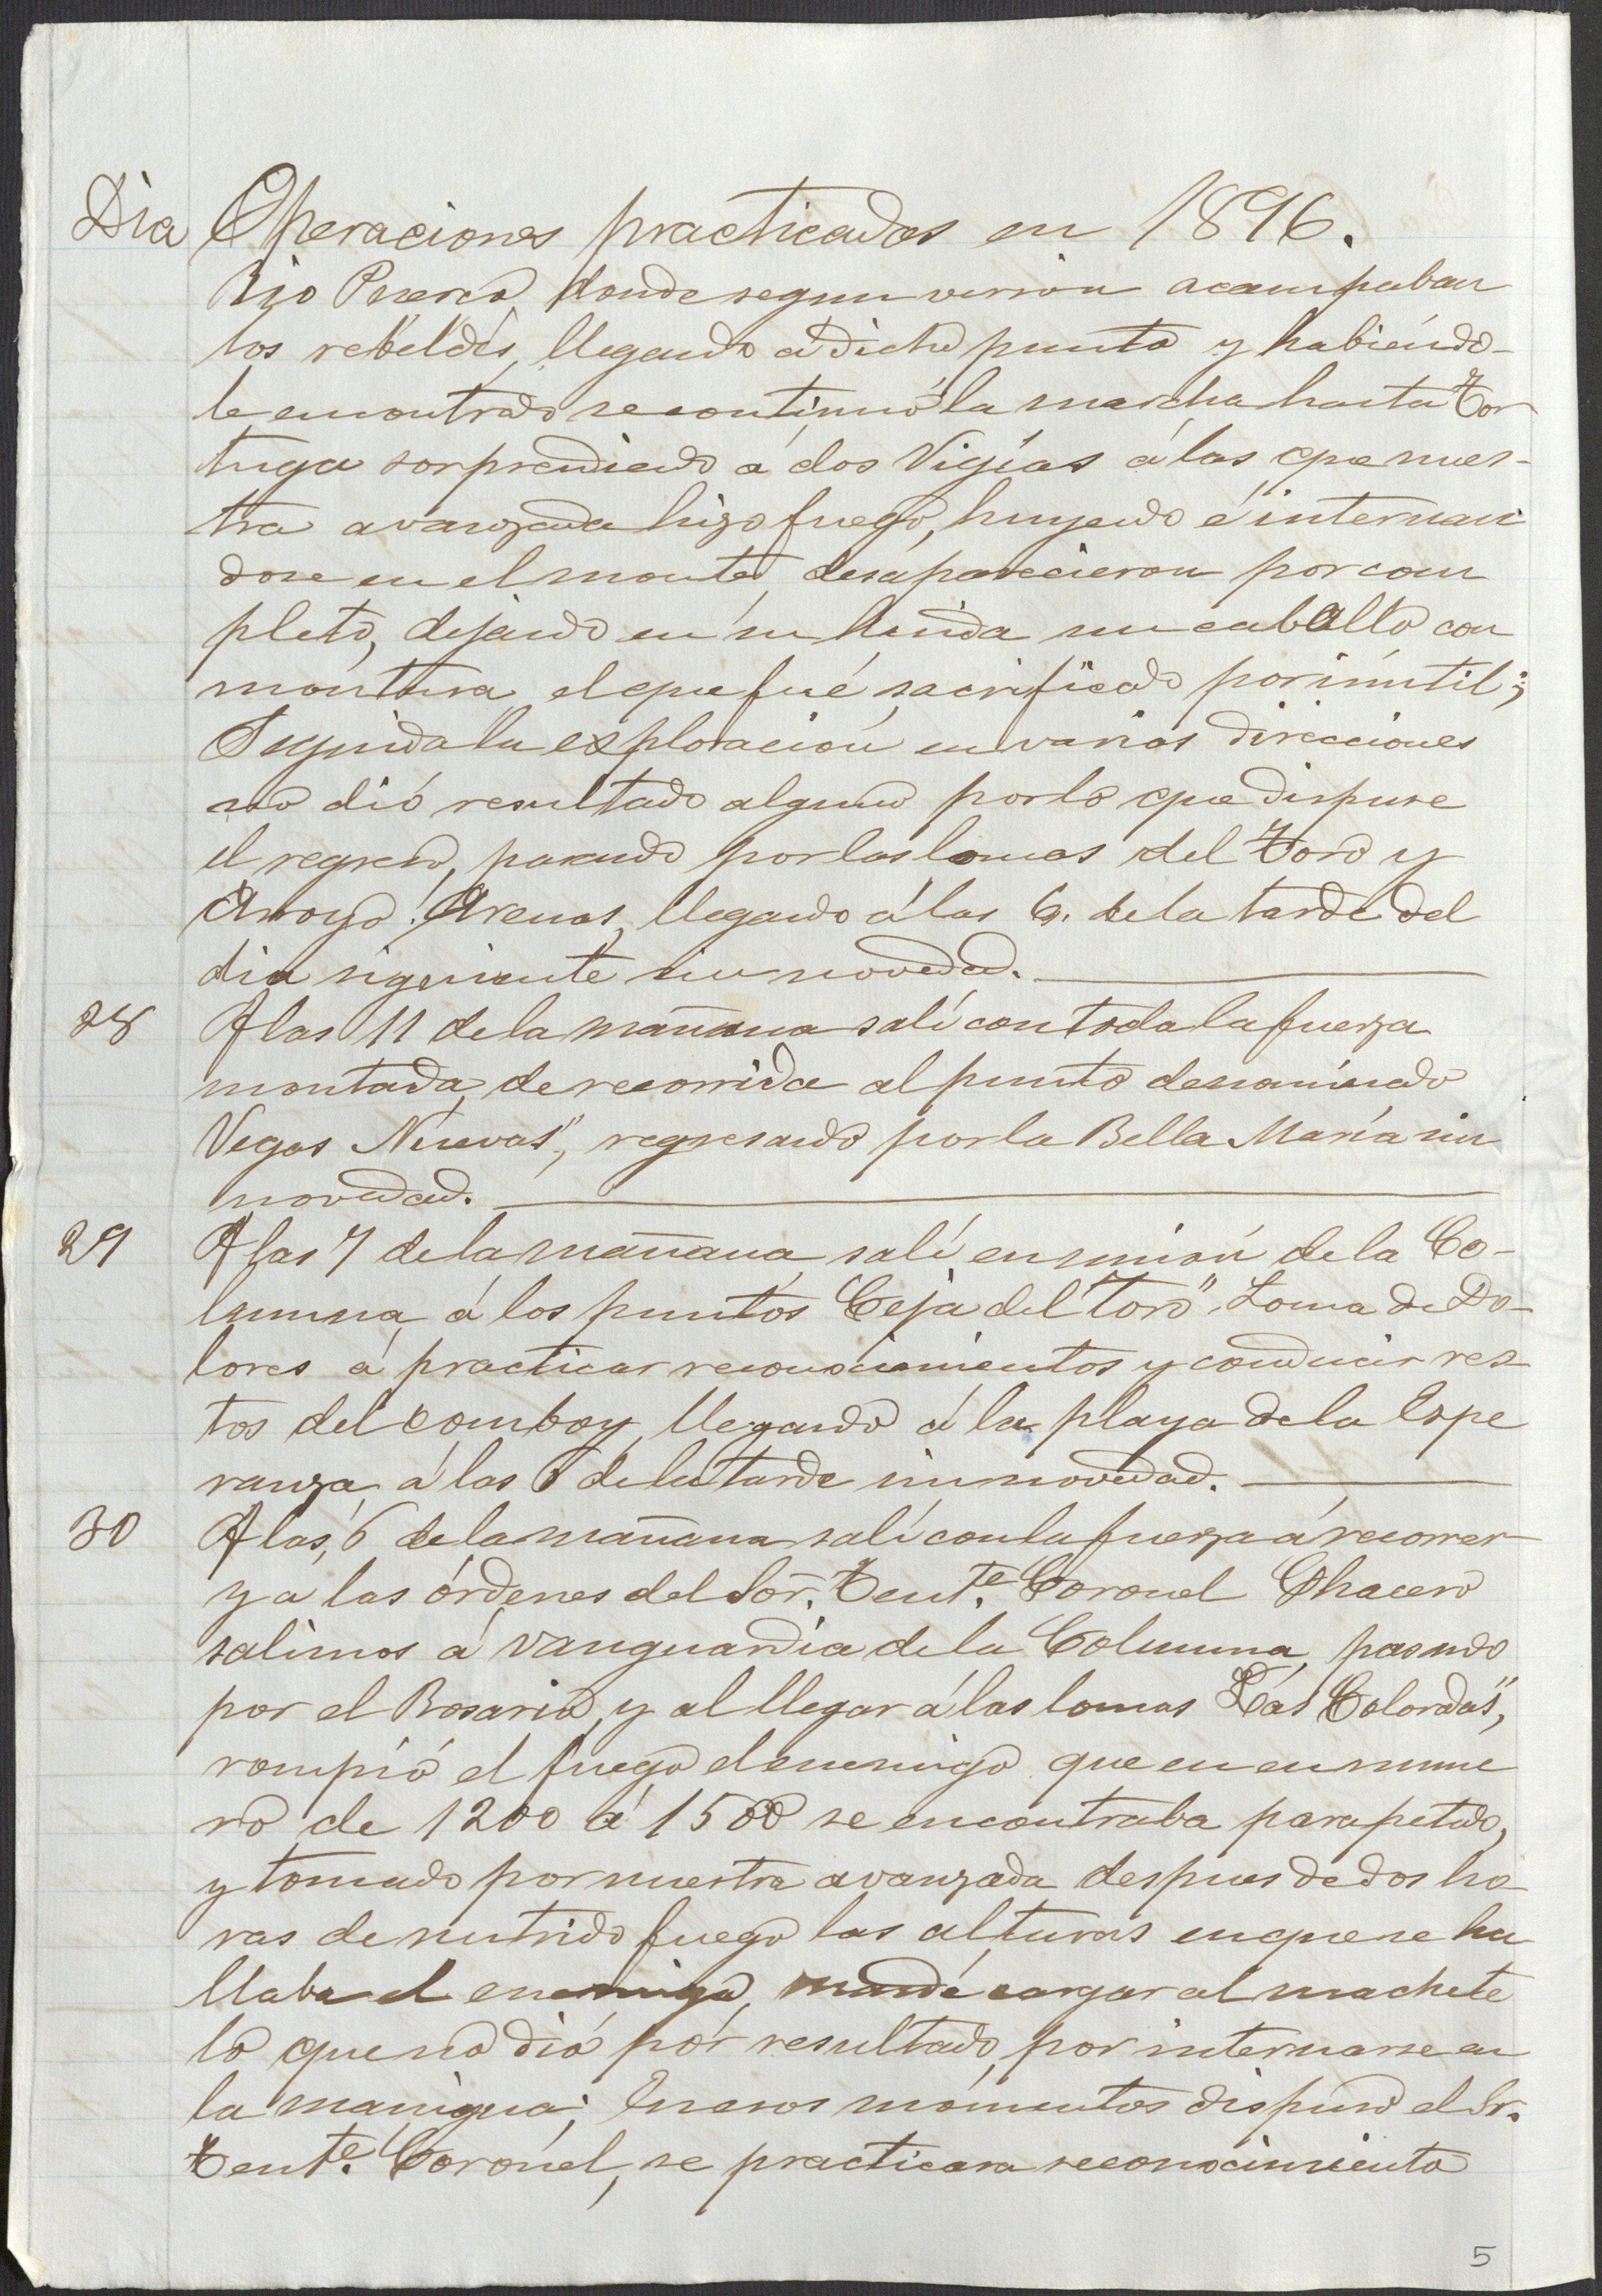 Dia Operaciones practicadas en 1896.
Rio Puerco donde segun version acampaban
los rebeldes, llegando á dicho punto y habiéndo-
le encontrado se continuó la marcha hasta Tor-
tuga sorprendiendo á dos Vigías á las que nues-
tra avanzada hizo fuego, huyendo é internan
dose en el monte, desaparecieron por com
pleto, dejando en su huida un caballo con
montura, el que fué sacrificado por inútil;
Seguida la exploracion en varias direcciones
no dió resultado alguno por lo que dispuse
el regreso, pasando por las lomas del Toro y
Arroyo Arenas, llegando á las 6. de la tarde del
dia siguiente sin novedad.
28 A las 11 de la mañana salí con toda la fuerza
montada, de recorrida al punto denominado
Vegas Nuevas", regresando por la Bella María sin
novedad.
29 A las 7 de la mañana salí en union de la Co-
lumna, á los puntos "Ceja del Toro" Loma de Do-
lores á practicar reconocimientos y conducir res-
tos del comboy, llegando á la playa de la Espe
ranza á las 6 de la tarde sin novedad.
30 A las, 6 de la mañana salí con la fuerza á recorrer
y a las órdenes del Sor. Tent.e Coronel Chacero
salimos á vanguardia de la Columna, pasando
por el Rosario, y al llegar á las lomas "Las Coloradas",
rompió el fuego el enemigo que en en nume
ro de 1200 á 1500 se encontraba parapetado,
y tomado por nuestra avanzada despues de dos ho
ras de nutrido fuego las alturas en que se ha
llaba el enemigo, mandé cargar al machete
lo que no dió por resultado, por internarse en
la manigua; En esos momentos dispuso el Sr.
Tent.e Coronel, se practicara reconocimiento
5